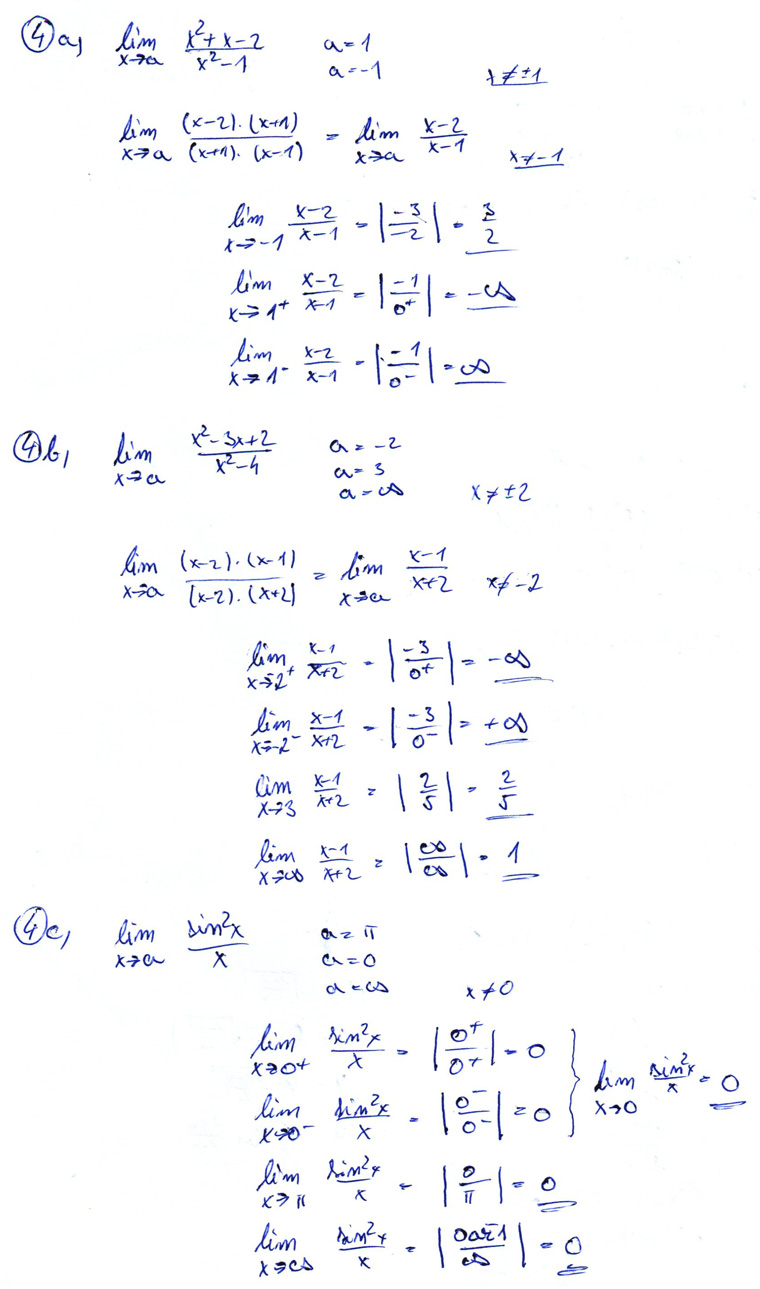 4a, lim x→a (x²+x-2)/(x²-1) a=1
a=-1 x≠±1
lim x→a ((x-2)·(x+1))/((x+1)·(x-1)) = lim x→a (x-2)/(x-1) x≠-1
lim x→-1 (x-2)/(x-1) = |-3/-2| = 3/2
lim x→1⁺ (x-2)/(x-1) = |-1/0⁺| = -∞
lim x→1⁻ (x-2)/(x-1) = |-1/0⁻| = ∞
4b, lim x→a (x²-3x+2)/(x²-4) a=-2
a=3
a=∞ x≠±2
lim x→a ((x-2)·(x-1))/((x-2)·(x+2)) = lim x→a (x-1)/(x+2) x≠-2
lim x→-2⁺ (x-1)/(x+2) = |-3/0⁺| = -∞
lim x→-2⁻ (x-1)/(x+2) = |-3/0⁻| = +∞
lim x→3 (x-1)/(x+2) = |2/5| = 2/5
lim x→∞ (x-1)/(x+2) = |∞/∞| = 1
4c, lim x→a sin²x/x a=π
a=0
a=∞ x≠0
lim x→0⁺ sin²x/x = |0⁺/0⁺| = 0
lim x→0⁻ sin²x/x = |0⁻/0⁻| = 0 } lim x→0 sin²x/x = 0
lim x→π sin²x/x = |0/π| = 0
lim x→∞ sin²x/x = |0až1/∞| = 0